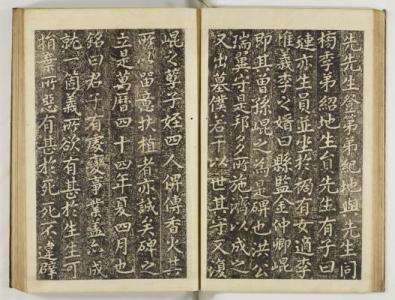 先先生登第弟紀地與先生同
榜季弟紹地生員先生有子曰
璉亦生員並坐於禍有女適李
惟義李之婿曰縣監金仲鯤
即其曾孫崐之為是碑也洪公
瑞翼守是邦多所施濟以成之
又出墓僕若干以世其守又復
崐之孽子姪四人俾傳香火其
所以留意扶植者亦誠矣碑之
立是萬曆四十四年夏四月也
銘曰君子有處變事業蓋令成
就一箇義所欲有甚於生生可
捐棄所惡有甚於死死不違辟